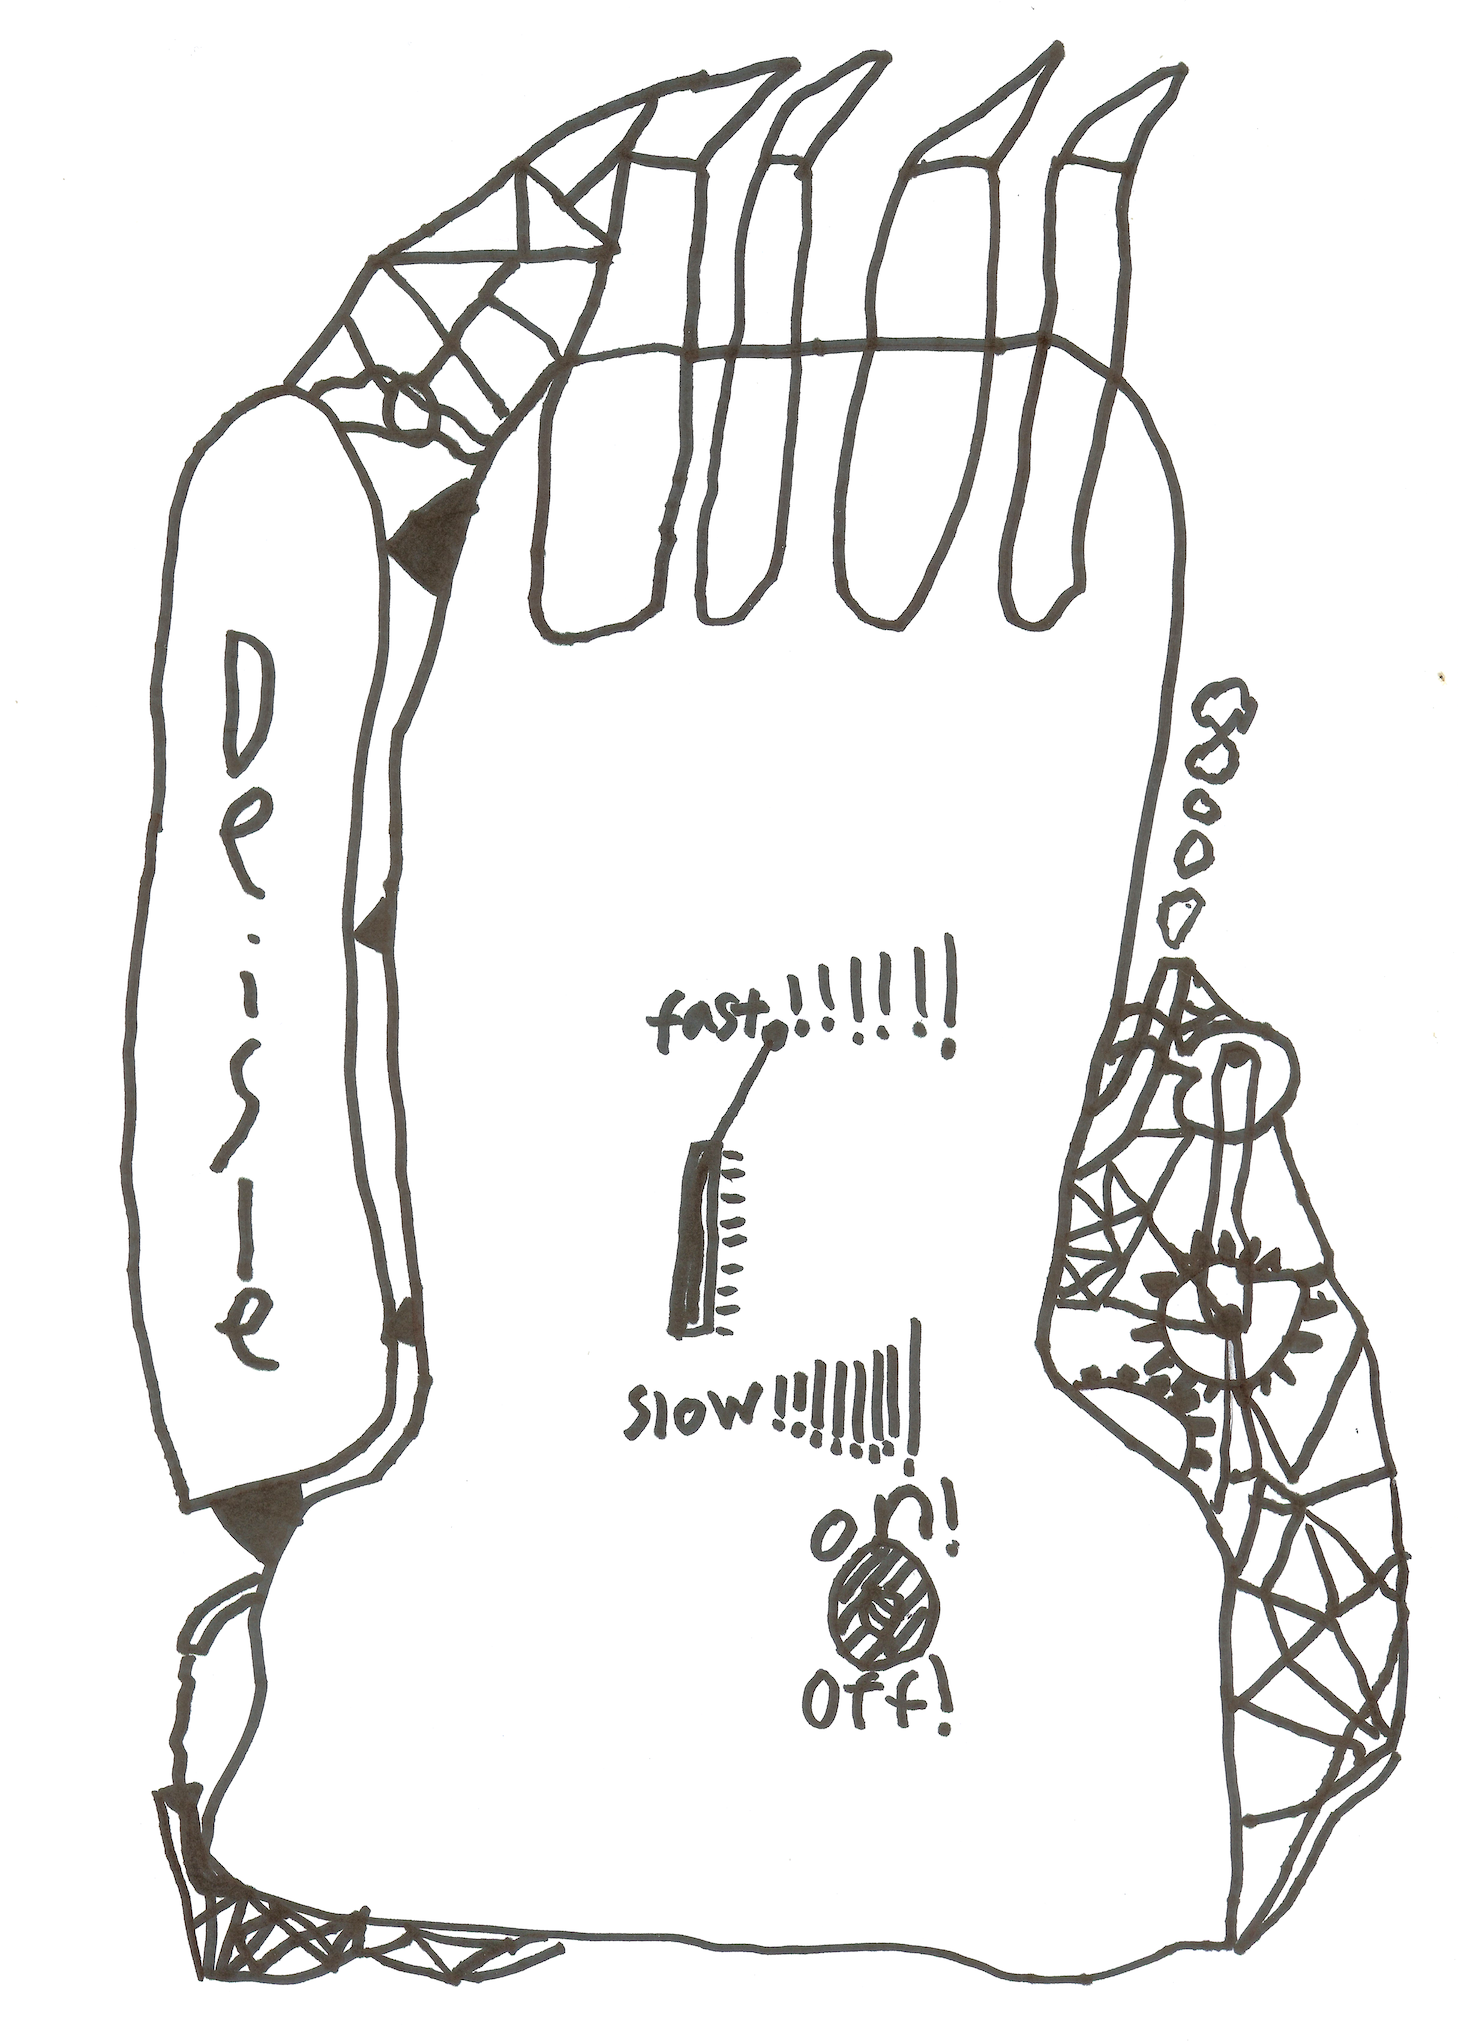 Deisle
8000
fast.!!!!!!
slow!!!!!!!!
on!
off!